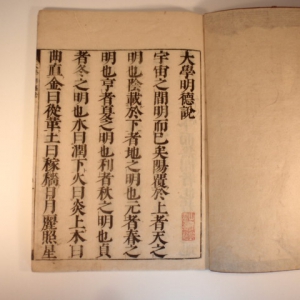 大學明德說
宇宙之間明而已矣陽覆於上者天之
明也陰載於下者地之明也元者春之
明也亨者夏之明也利者秋之明也貞
者冬之明也水曰潤下火曰炎上木曰
曲直金曰從革土曰稼穡日月麗照星